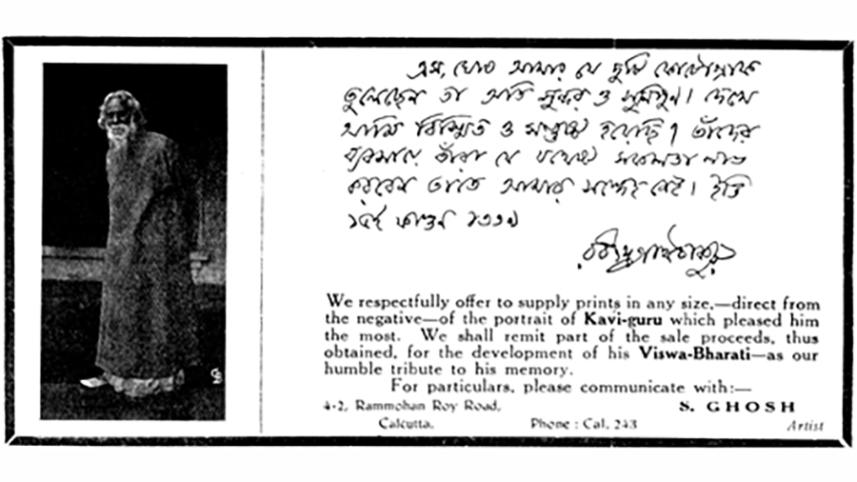 এস, ঘোষ আমার যে দুটি ফোটোগ্রাফ
তুলেছেন তা অতি সুন্দর ও সুনিপুণ। দেখে
আমি বিস্মিত ও সন্তুষ্ট হয়েছি। তাঁদের
ব্যবসায়ে তাঁরা যে যথেষ্ট সফলতা লাভ
করবেন তাতে আমার সন্দেহ নেই। ইতি
ফাল্গুন
রবীন্দ্রনাথ ঠাকুর
We respectfully offer to supply prints in any size,—direct from
the negative—of the portrait of Kavi-guru which pleased him
the most. We shall remit part of the sale proceeds, thus
obtained, for the development of his Viswa-Bharati—as our
humble tribute to his memory.
For particulars, please communicate with:—
4-2, Rammohan Roy Road, S. GHOSH
Calcutta. Phone : Cal. 243 Artist